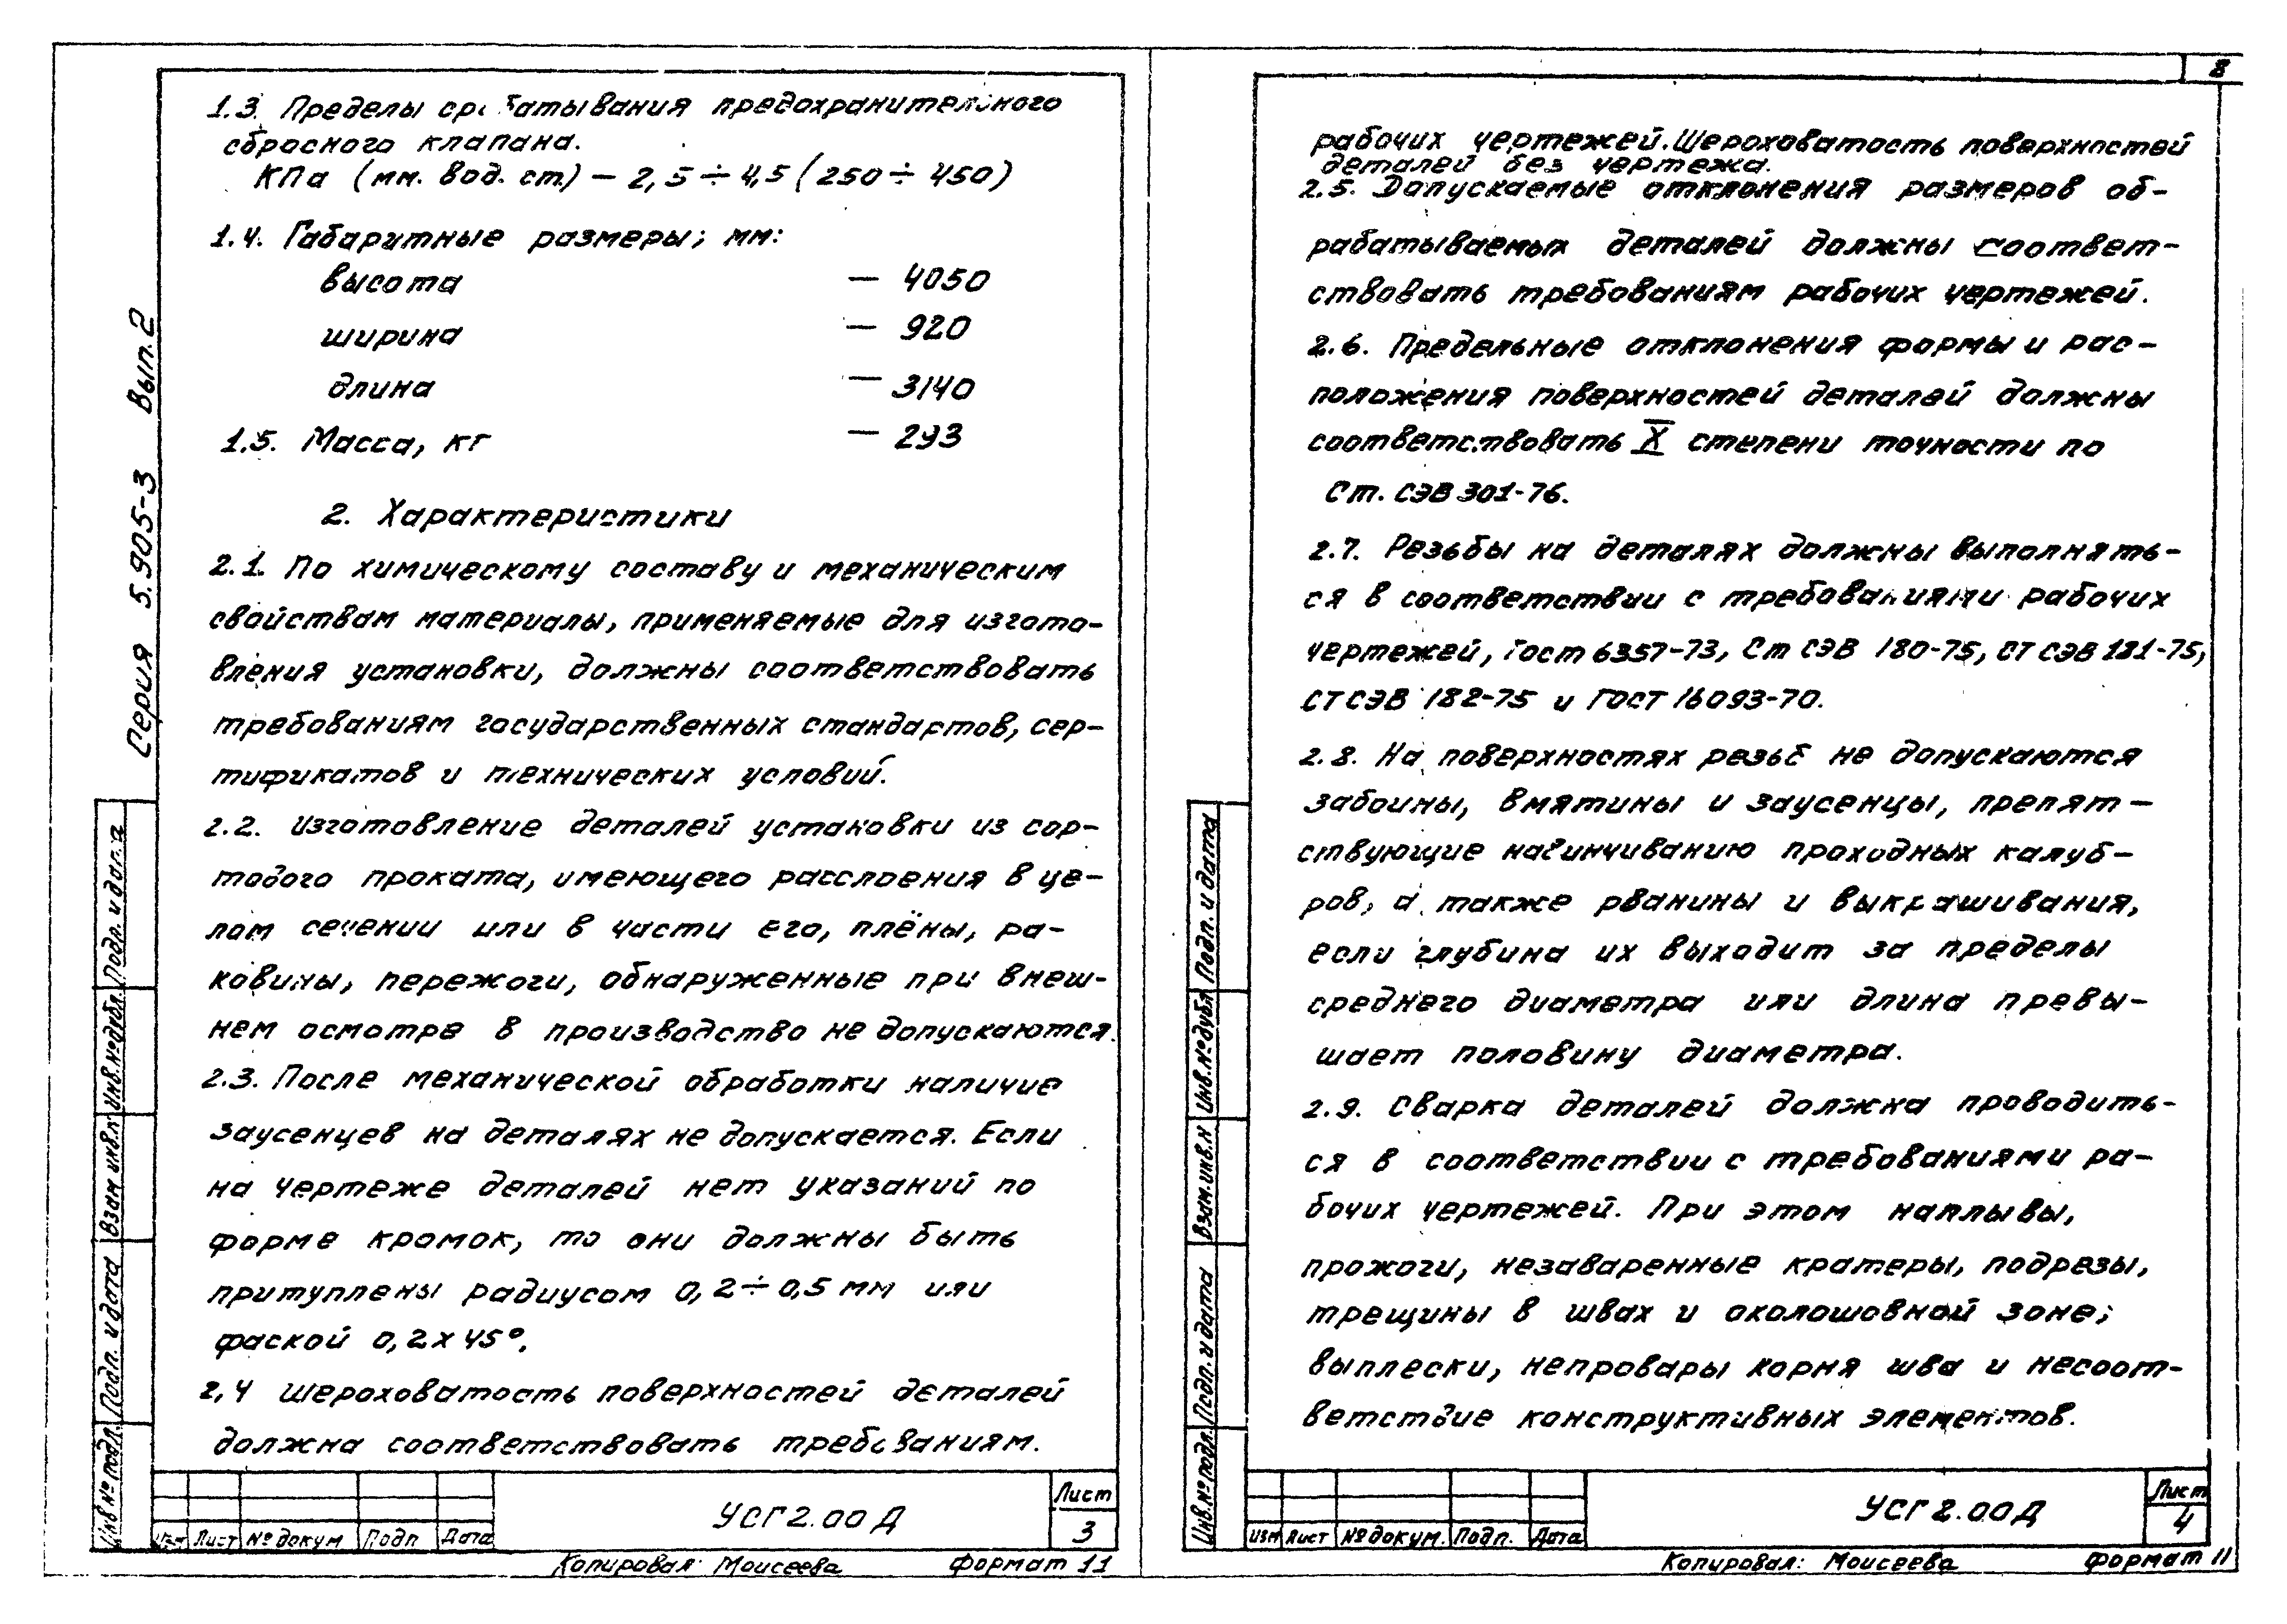 1.3. Пределы срабатывания предохранительного
сбросного клапана.
КПа (мм. вод. ст.) — 2,5÷4,5 (250÷450)
1.4. Габаритные размеры; мм:
высота — 4050
ширина — 920
длина — 3140
1.5. Масса, кг — 293
2. Характеристики
2.1. По химическому составу и механическим
свойствам материалы, применяемые для изгото-
вления установки, должны соответствовать
требованиям государственных стандартов, сер-
тификатов и технических условий.
2.2. Изготовление деталей установки из сор-
тодого проката, имеющего расслоения в це-
лом сечении или в части его, плёны, ра-
ковины, пережоги, обнаруженные при внеш-
нем осмотре в производство не допускаются.
2.3. После механической обработки наличие
заусенцев на деталях не допускается. Если
на чертеже деталей нет указаний по
форме кромок, то они должны быть
притуплены радиусом 0,2÷0,5 мм или
фаской 0,2х45°,
2,4 Шероховатость поверхностей деталей
должна соответствовать требованиям.
Серия 5.905-3 Вып.2
Подп. и дата
Инв.№дубл.
Взам инв.№
Подп. и дата
Инв №подл.
Изм Лист №докум Подп Дата
УСГ2.00Д
Лист
3
Копировал: Моисеева Формат 11
8
рабочих чертежей. Шероховатость поверхностей
деталей без чертежа.
2.5. Допускаемые отклонения размеров об-
рабатываемых деталей должны соответ-
ствовать требованиям рабочих чертежей.
2.6. Предельные отклонения формы и рас-
положения поверхностей деталей должны
соответствовать X степени точности по
Ст. СЭВ 301-76.
2.7. Резьбы на деталях должны выполнять-
ся в соответствии с требованиями рабочих
чертежей, Гост 6357-73, Ст СЭВ 180-75, СТ СЭВ 181-75,
СТ СЭВ 182-75 и ГОСТ 16093-70.
2.8. На поверхностях резьб не допускаются
забоины, вмятины и заусенцы, препят-
ствующие навинчиванию проходных калуб-
ров, а также рванины и выкрашивания,
если глубина их выходит за пределы
среднего диаметра или длина превы-
шает половину диаметра.
2.9. Сварка деталей должна проводить-
ся в соответствии с требованиями ра-
бочих чертежей. При этом наплывы,
прожоги, незаваренные кратеры, подрезы,
трещины в швах и околошовной зоне;
выплески, непровары корня шва и несоот-
ветствие конструктивных элементов.
Подп. и дата
Инв.№дубл
Взам.инв.№
Подп. и дата
Инв.№подл.
Изм Лист №докум. Подп. Дата
УСГ2.00Д
Лист
4
Копировал: Моисеева Формат 11